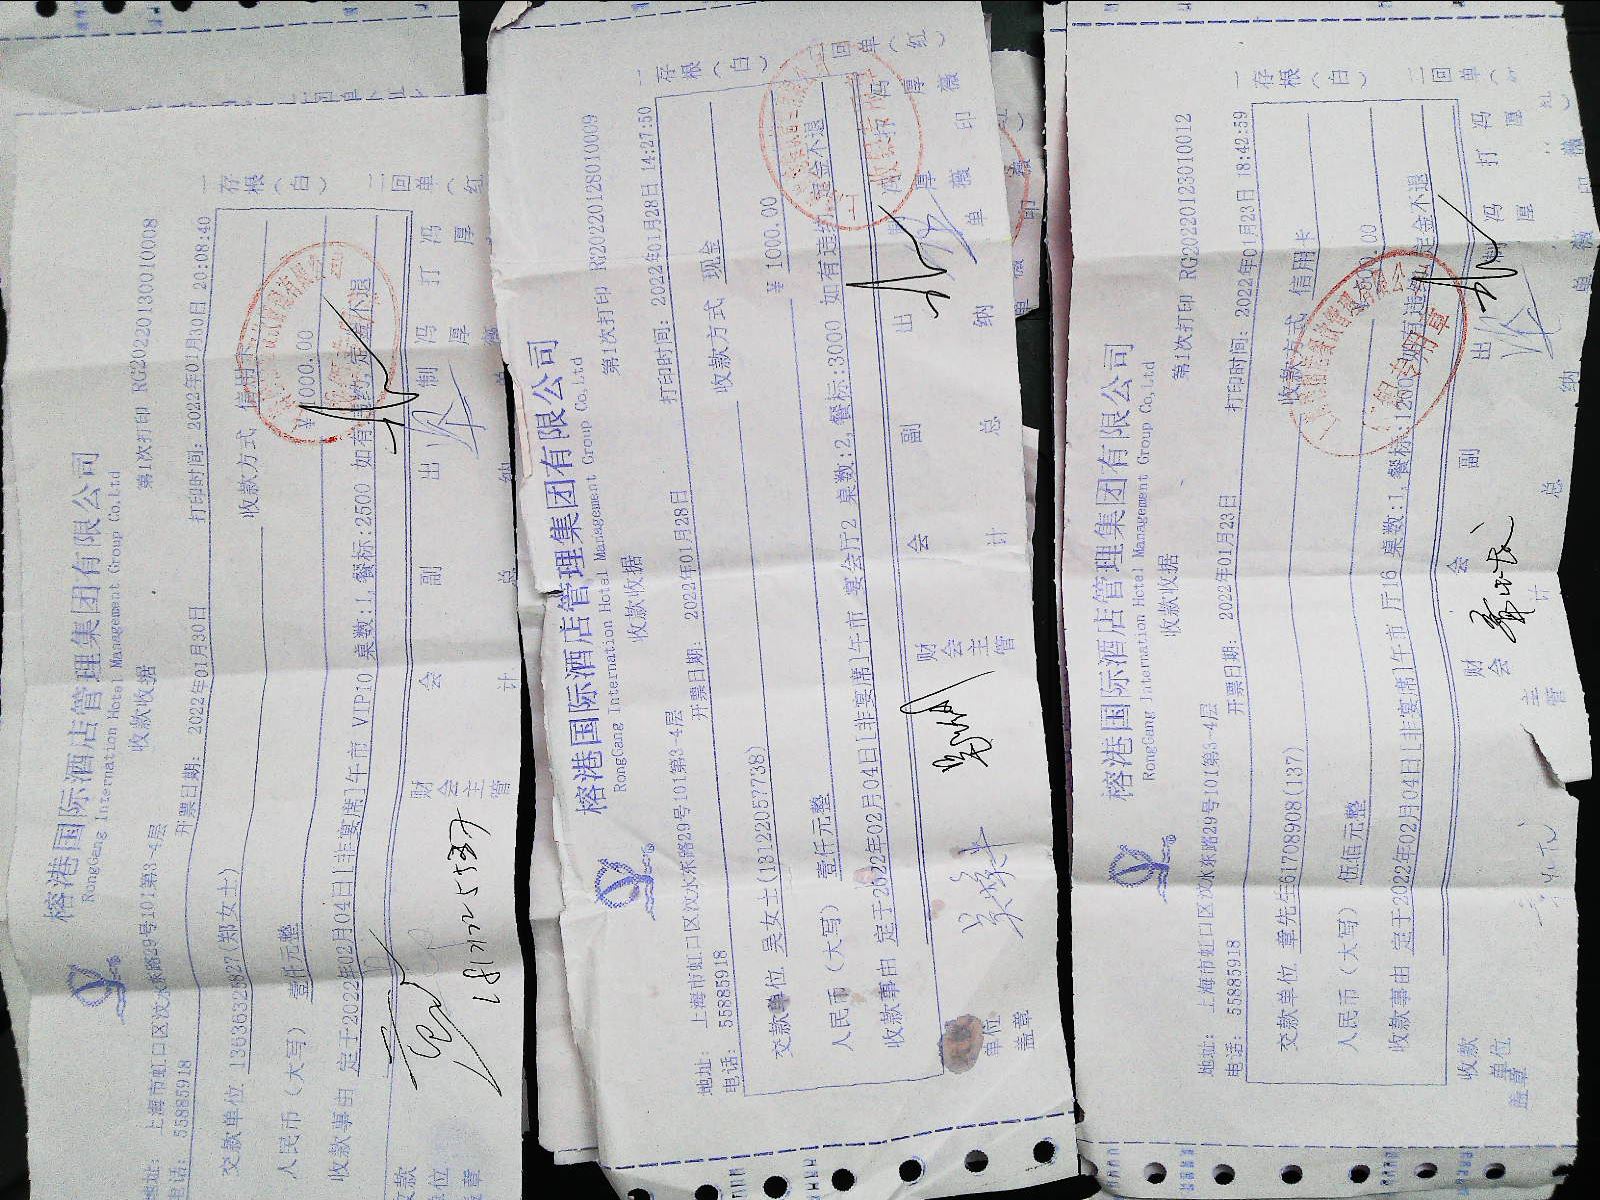 榕港国际酒店管理集团有限公司
RongGang Internation Hotel Management Group Co,Ltd
收款收据
第1次打印 RG20220130010008
地址： 上海市虹口区汶水东路29号101第3-4层
电话：55885918
开票日期： 2022年01月30日
打印时间：2022年01月30日 20:08:40
交款单位 13636325827(郑女士)
收款方式 信用卡
人民币（大写） 壹仟元整
¥ 1000.00
收款事由 定于2022年02月04日[非宴席]午市 VIP10 桌数:1,餐标:2500 如有违约,定金不退
财会主管
会计
副总
出纳
制单 冯厚薇
打印 冯厚
一存根（白） 二回单（红
榕港国际酒店管理集团有限公司
RongGang Internation Hotel Management Group Co,Ltd
收款收据
第1次打印 RG20220128010009
地址： 上海市虹口区汶水东路29号101第3-4层
电话：55885918
开票日期： 2022年01月28日
打印时间：2022年01月28日 14:27:50
交款单位 吴女士(13122057738)
收款方式 现金
人民币（大写） 壹仟元整
¥ 1000.00
收款事由 定于2022年02月04日[非宴席]午市 宴会厅2 桌数:2,餐标:3000 如有违约,定金不退
单位盖章
财会主管
会计
副总
出纳
制单 冯厚薇
打印 冯厚薇
一存根（白） 二回单（红）
榕港国际酒店管理集团有限公司
RongGang Internation Hotel Management Group Co,Ltd
收款收据
第1次打印 RG20220123010012
地址： 上海市虹口区汶水东路29号101第3-4层
电话：55885918
开票日期： 2022年01月23日
打印时间：2022年01月23日 18:42:59
交款单位 章先生61708908(137)
收款方式 信用卡
人民币（大写） 伍佰元整
收款事由 定于2022年02月04日[非宴席]午市 厅16 桌数:1,餐标:1200 如有违约,定金不退
收款单位盖章
财会主管
会计
副总
出纳
制单 冯厚薇
打印 冯厚薇
一存根（白） 二回单（红）